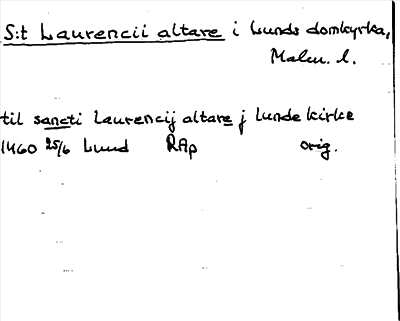 S:t Laurencii altare i Lunds domkyrka,
Malm. l.
til sancti Laurencij altare j Lunde kirke
1460 25/6 Lund RAp orig.